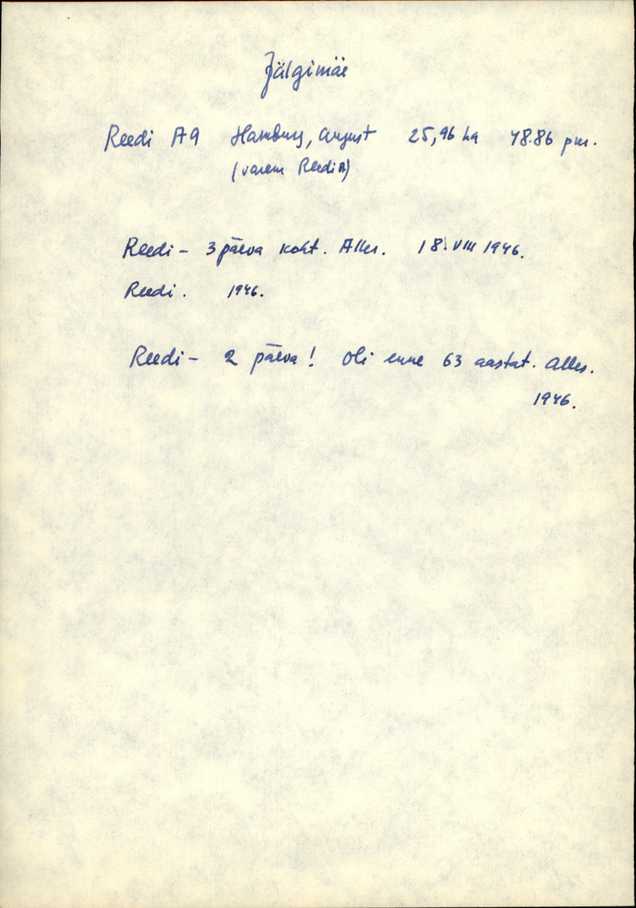 Jälgimäe
Reedi A9 Hamburg, August 25,96 ha 48.86 pm.
(varem Reedi A)
Reedi - 3 päeva koht. Alles. 18. VIII 1946.
Reedi. 1946.
Reedi - 2 päeva! Oli enne 63 aastat. Alles.
1946.